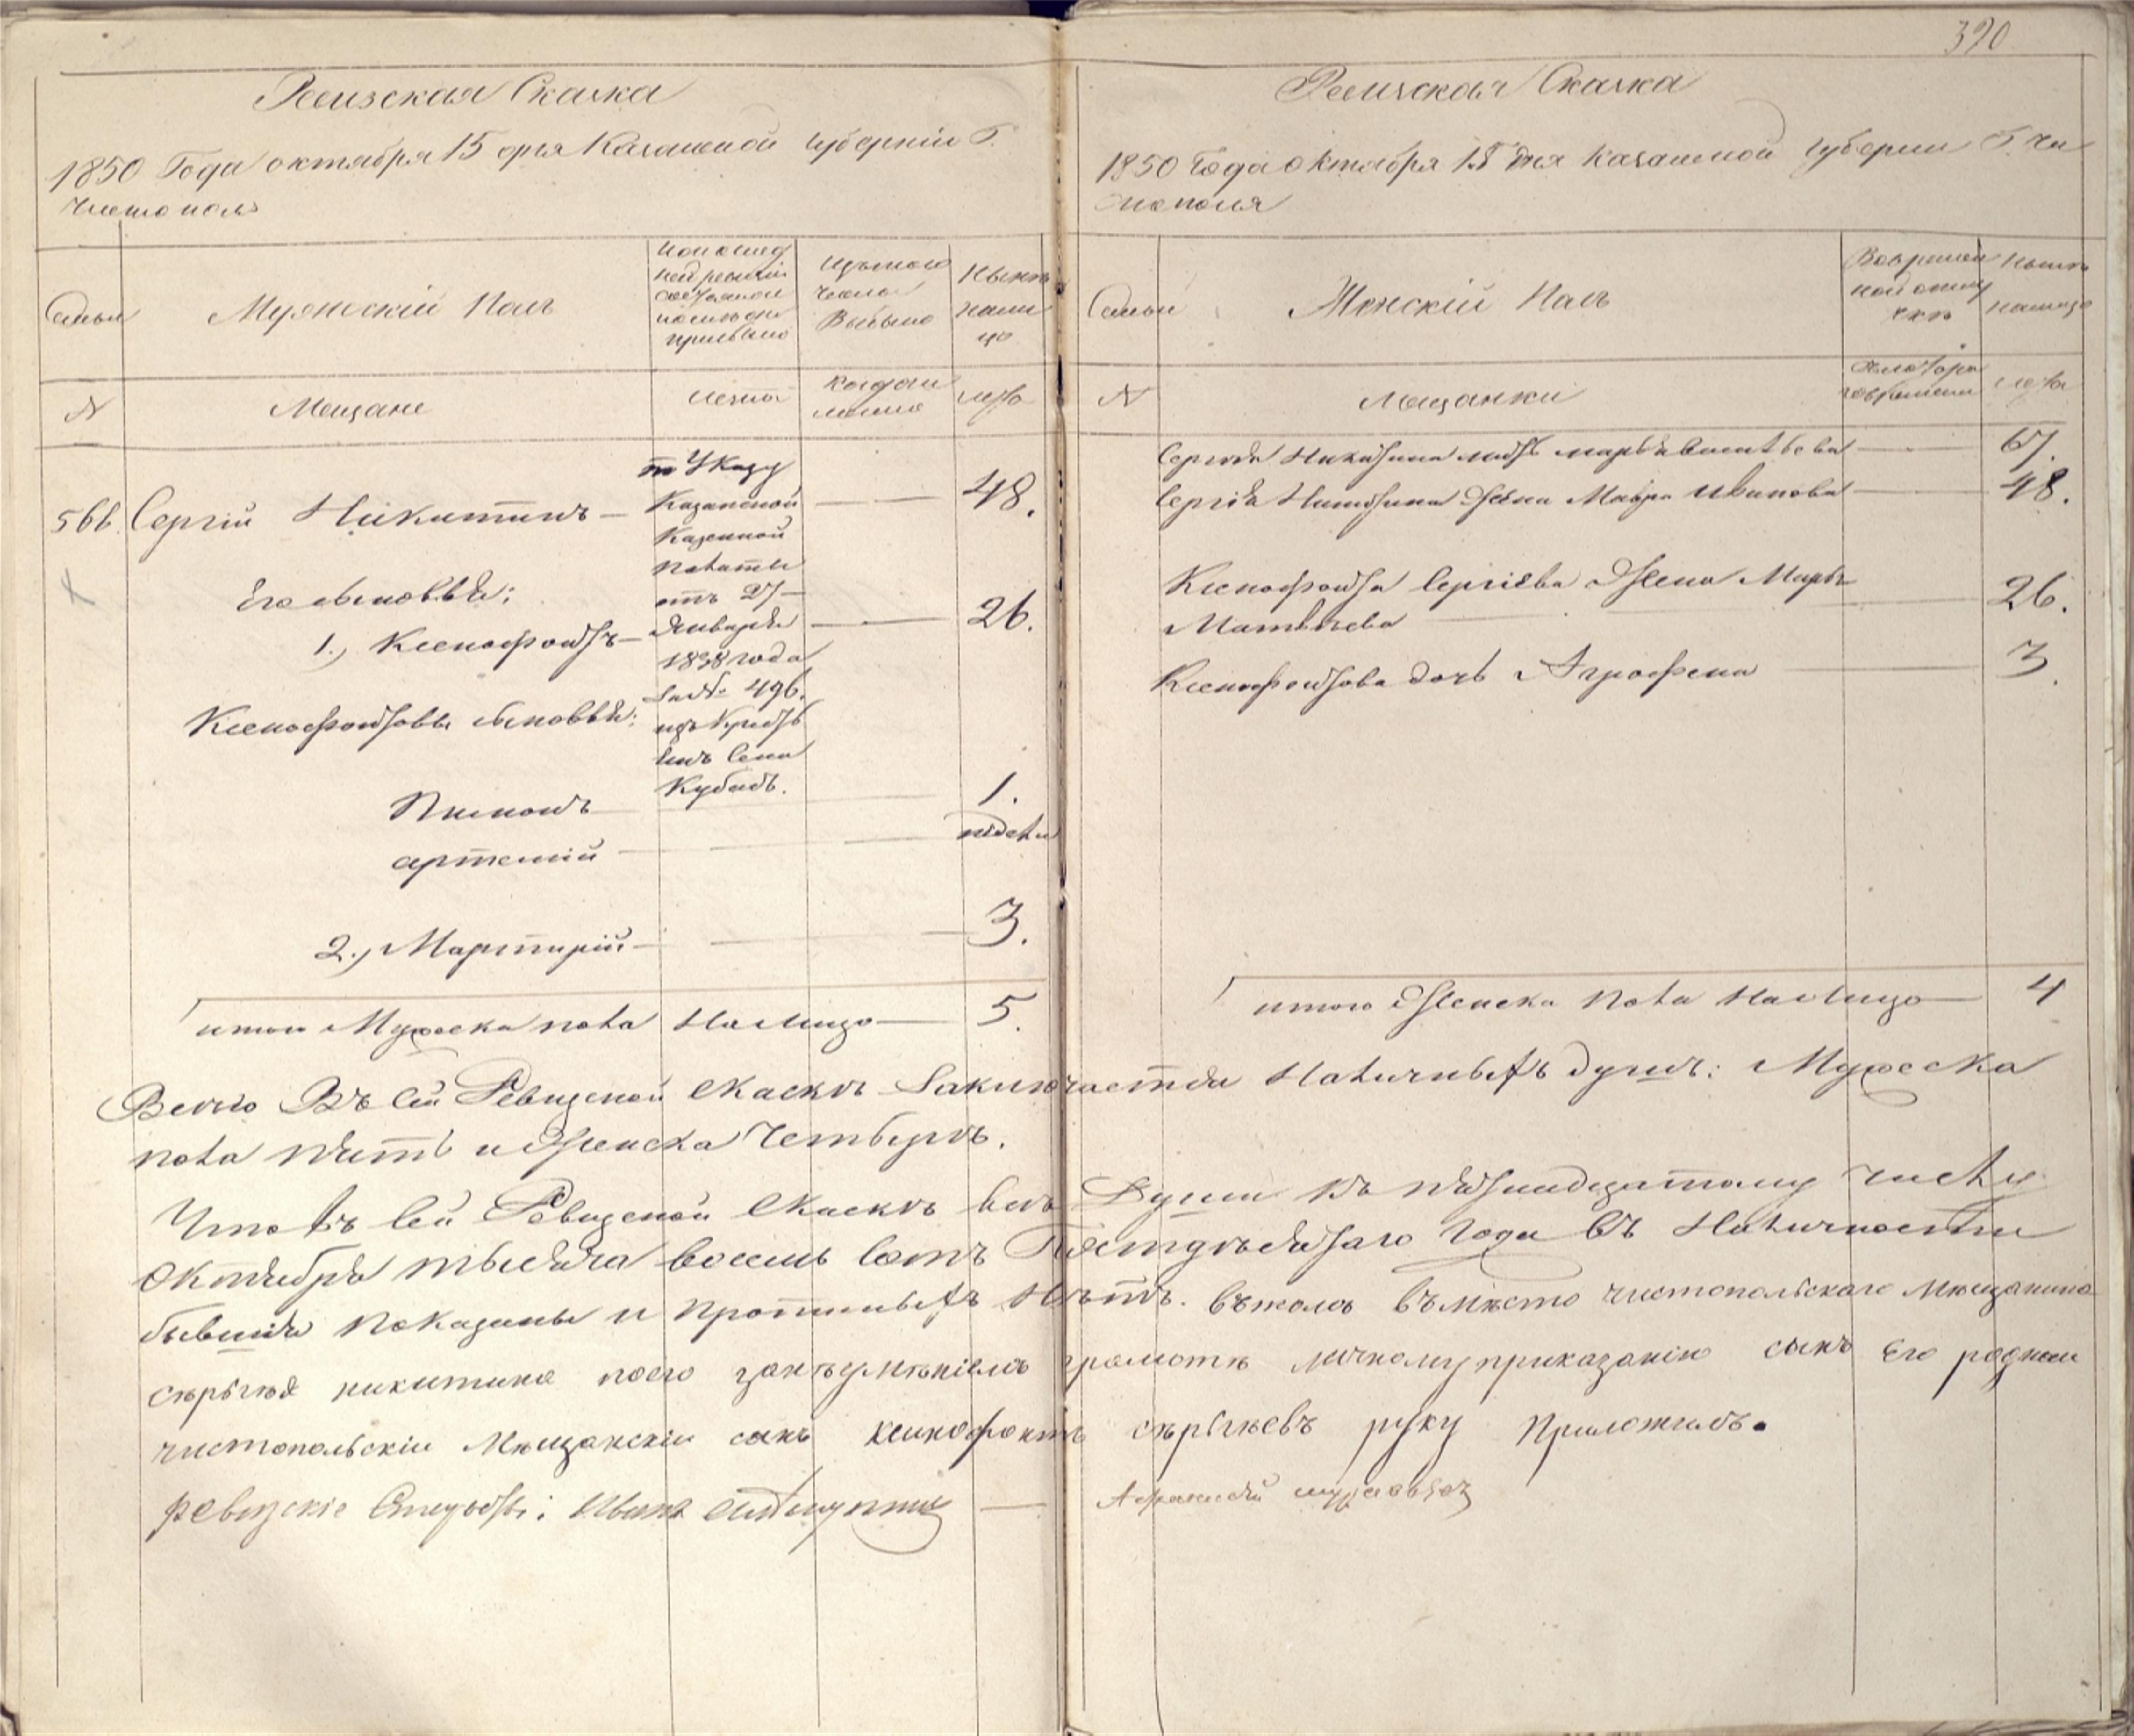 390
Ревизская Сказка
1850 Года октября 15 дня Казанской губерніи Г.
Чистополь
Семьи
Мужескій Полъ
По послѣд
ней ревизіи
состояло и
послѣ оной
прибыло
Изъ того
числа
Выбыло
Нынѣ
на ли
цо
№
Мещане
Лета
когда и
лета
566. Сергій Никитинъ — 48.
по Указу
Казанской
Казенной
Палаты
отъ 27
Января
1838 года
за № 496.
изъ Крестья
инъ Села
Кубасъ.
Его сыновья:
1., Ксенофонтъ — 26.
Ксенофонтовы сыновья:
Пименъ 1.
артемій недели
2., Мартирій 3.
итого Мужеска пола На лицо 5.
Ревизская Сказка
1850 Года октября 15 дня Казанской губерніи Г. Чи
стополя
Семьи
Женскій Полъ
Во времен
ной отлу
чкѣ
Нынѣ
на лицо
№
Мещанки
Съ котораго
времени
лета
Сергея Никитина мать марья Васильева — 67.
Сергія Никитина Жена Мавра Иванова — 48.
Ксенофонта Сергіева Жена Марья
Матвеева 26.
Ксенофонтова дочь Агрофена 3.
итого Женска Пола На Лицо 4
Всего Въ Сей Ревизской Сказкѣ Заключается Наличныхъ душъ: Мужеска
пола пять и Женска Четыре.
Что въ Сей Ревизской Сказкѣ всѣ Души къ пятнадцатому числу
Октября тысяча восемь сотъ Пятдѣсятаго Года Въ Наличности
бывшія Показаны и прописныхъ Нѣтъ. Въ томъ въмѣсто чистопольскаго мѣщанина
сѣрьгѣя никитина поего занѣумѣніемъ грамотѣ личному приказанію сынъ Его родной
чистопольскіи Мѣщанскіи сынъ ксинофонтъ сѣрьгѣевъ руку Приложилъ.
ревизскіе Иванъ